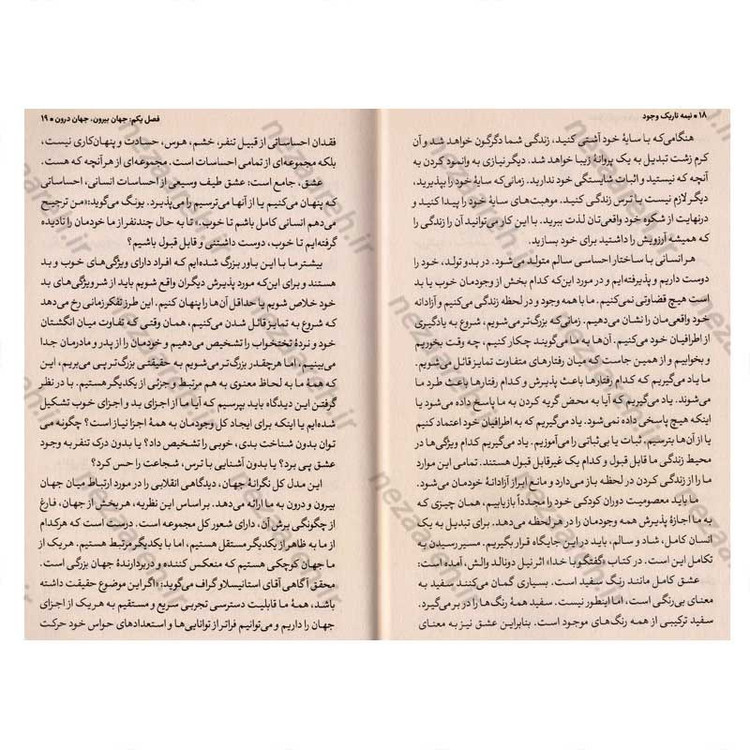 ۱۸ • نیمه تاریک وجود
هنگامی‌که با سایهٔ خود آشتی کنید، زندگی شما دگرگون خواهد شد و آن
کرم زشت تبدیل به یک پروانهٔ زیبا خواهد شد. دیگر نیازی به وانمود کردن به
آنچه که نیستید و اثبات شایستگی خود ندارید. زمانی‌که سایهٔ خود را بپذیرید،
دیگر لازم نیست با ترس زندگی کنید. موهبت‌های سایهٔ خود را پیدا کنید و
درنهایت از شکوه خود واقعی‌تان لذت ببرید. با این کار می‌توانید آن زندگی را
که همیشه آرزویش را داشتید برای خود بسازید.
هر انسانی با ساختار احساسی سالم متولد می‌شود. در بدو تولد، خود را
دوست داریم و پذیرفته‌ایم و در مورد این‌که کدام بخش از وجودمان خوب یا بد
است هیچ قضاوتی نمی‌کنیم. ما با همه وجود و در لحظه زندگی می‌کنیم و آزادانه
خود واقعی‌مان را نشان می‌دهیم. زمانی‌که بزرگ‌تر می‌شویم، شروع به یادگیری
از اطرافیان خود می‌کنیم. آن‌ها به ما می‌گویند چکار کنیم، چه وقت بخوریم
و بخوابیم و از همین جاست که میان رفتارهای متفاوت تمایز قائل می‌شویم.
ما یاد می‌گیریم که کدام رفتارها باعث پذیرش و کدام رفتارها باعث طرد ما
می‌شوند. یاد می‌گیریم که آیا به محض گریه کردن به ما پاسخ داده می‌شود یا
اینکه هیچ پاسخی داده نمی‌شود. یاد می‌گیریم که به اطرافیان خود اعتماد کنیم
یا از آن‌ها بترسیم. ثبات یا بی‌ثباتی را می‌آموزیم. یاد می‌گیریم کدام ویژگی‌ها در
محیط زندگی ما قابل قبول و کدام یک غیرقابل قبول هستند. تمامی این موارد
ما را از زندگی کردن در لحظه باز می‌دارد و مانع ابراز آزادانهٔ خودمان می‌شود.
ما باید معصومیت دوران کودکی خود را مجدداً بازیابیم، همان چیزی که
به ما اجازهٔ پذیرش همه وجودمان را در هر لحظه می‌دهد. برای تبدیل به یک
انسان کامل، شاد و سالم، باید در این جایگاه قرار بگیریم. مسیر رسیدن به
تکامل این است. در کتاب، «گفتگو با خدا» اثر نیل دونالد والش، آمده است:
عشق کامل مانند رنگ سفید است. بسیاری گمان می‌کنند سفید به
معنای بی‌رنگی است، اما اینطور نیست. سفید همهٔ رنگ‌ها را در بر می‌گیرد.
سفید ترکیبی از همه رنگ‌های موجود است. بنابراین عشق نیز به معنای
فصل یکم: جهان بیرون، جهان درون • ۱۹
فقدان احساساتی از قبیل تنفر، خشم، هوس، حسادت و پنهان‌کاری نیست،
بلکه مجموعه‌ای از تمامی احساسات است. مجموعه‌ای از هر آنچه که هست.
عشق، جامع است: عشق طیف وسیعی از احساسات انسانی، احساساتی
که پنهان می‌کنیم یا از آنها می‌ترسیم را می‌پذیرد. یونگ می‌گوید: «من ترجیح
می‌دهم انسانی کامل باشم تا خوب.» تا به حال چندنفر از ما خودمان را نادیده
گرفته‌ایم تا خوب، دوست داشتنی و قابل قبول باشیم؟
بیشتر ما با این باور بزرگ شده‌ایم که افراد دارای ویژگی‌های خوب و بد
هستند و برای این‌که مورد پذیرش دیگران واقع شویم باید از شر ویژگی‌های بد
خود خلاص شویم یا حداقل آن‌ها را پنهان کنیم. این طرز تفکر زمانی رخ می‌دهد
که شروع به تمایز قائل شدن می‌کنیم، همان وقتی که تفاوت میان انگشتان
خود و نردهٔ تختخواب را تشخیص می‌دهیم و خودمان را از پدر و مادرمان جدا
می‌بینیم. اما هرچقدر بزرگ‌تر می‌شویم به حقیقتی بزرگ‌تر پی می‌بریم، این
که همهٔ ما به لحاظ معنوی به هم مرتبط و جزئی از یکدیگر هستیم. با در نظر
گرفتن این دیدگاه باید بپرسیم که آیا ما از اجزای بد و اجزای خوب تشکیل
شده‌ایم یا اینکه برای ایجاد کل وجودمان به همهٔ اجزا نیاز است؟ چگونه می
توان بدون شناخت بدی، خوبی را تشخیص داد؟ یا بدون درک تنفر به وجود
عشق پی برد؟ یا بدون آشنایی با ترس، شجاعت را حس کرد؟
این مدل کل نگرانهٔ جهان، دیدگاهی انقلابی را در مورد ارتباط میان جهان
بیرون و درون به ما ارائه می‌دهد. بر اساس این نظریه، هر بخش از جهان، فارغ
از چگونگی برش آن، دارای شعور کل مجموعه است. درست است که هرکدام
از ما به ظاهر از یکدیگر مستقل هستیم، اما با یکدیگر مرتبط هستیم. هر یک از
ما جهان کوچکی هستیم که منعکس کننده و دربردارندهٔ جهان بزرگی است.
محقق آگاهی آقای استانیسلاو گراف می‌گوید: «اگر این موضوع حقیقت داشته
باشد، همهٔ ما قابلیت دسترسی تجربی سریع و مستقیم به هر یک از اجزای
جهان را داریم و می‌توانیم فراتر از توانایی‌ها و استعدادهای حواس خود حرکت